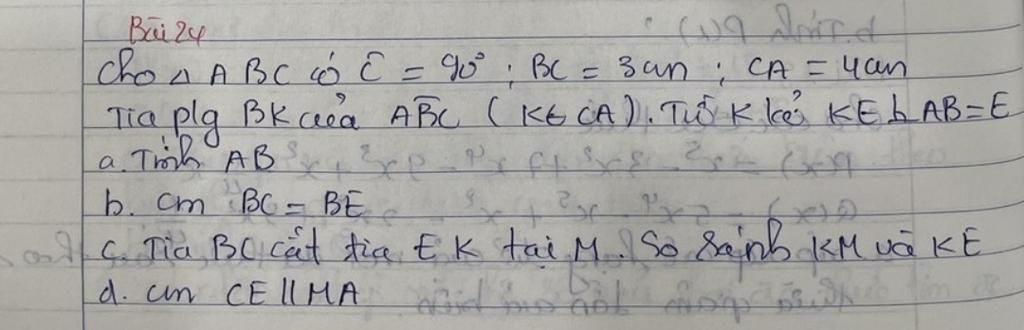 Bài 24
Cho △ ABC có Ĉ = 90° ; BC = 3cm ; CA = 4cm
Tia plg BK của AB̂C ( K∈ CA). Từ K kẻ KE ⊥ AB = E
a. Tính AB
b. cm BC = BE
c. Tia BC cắt tia EK tại M. So sánh KM và KE
d. cm CE || MA